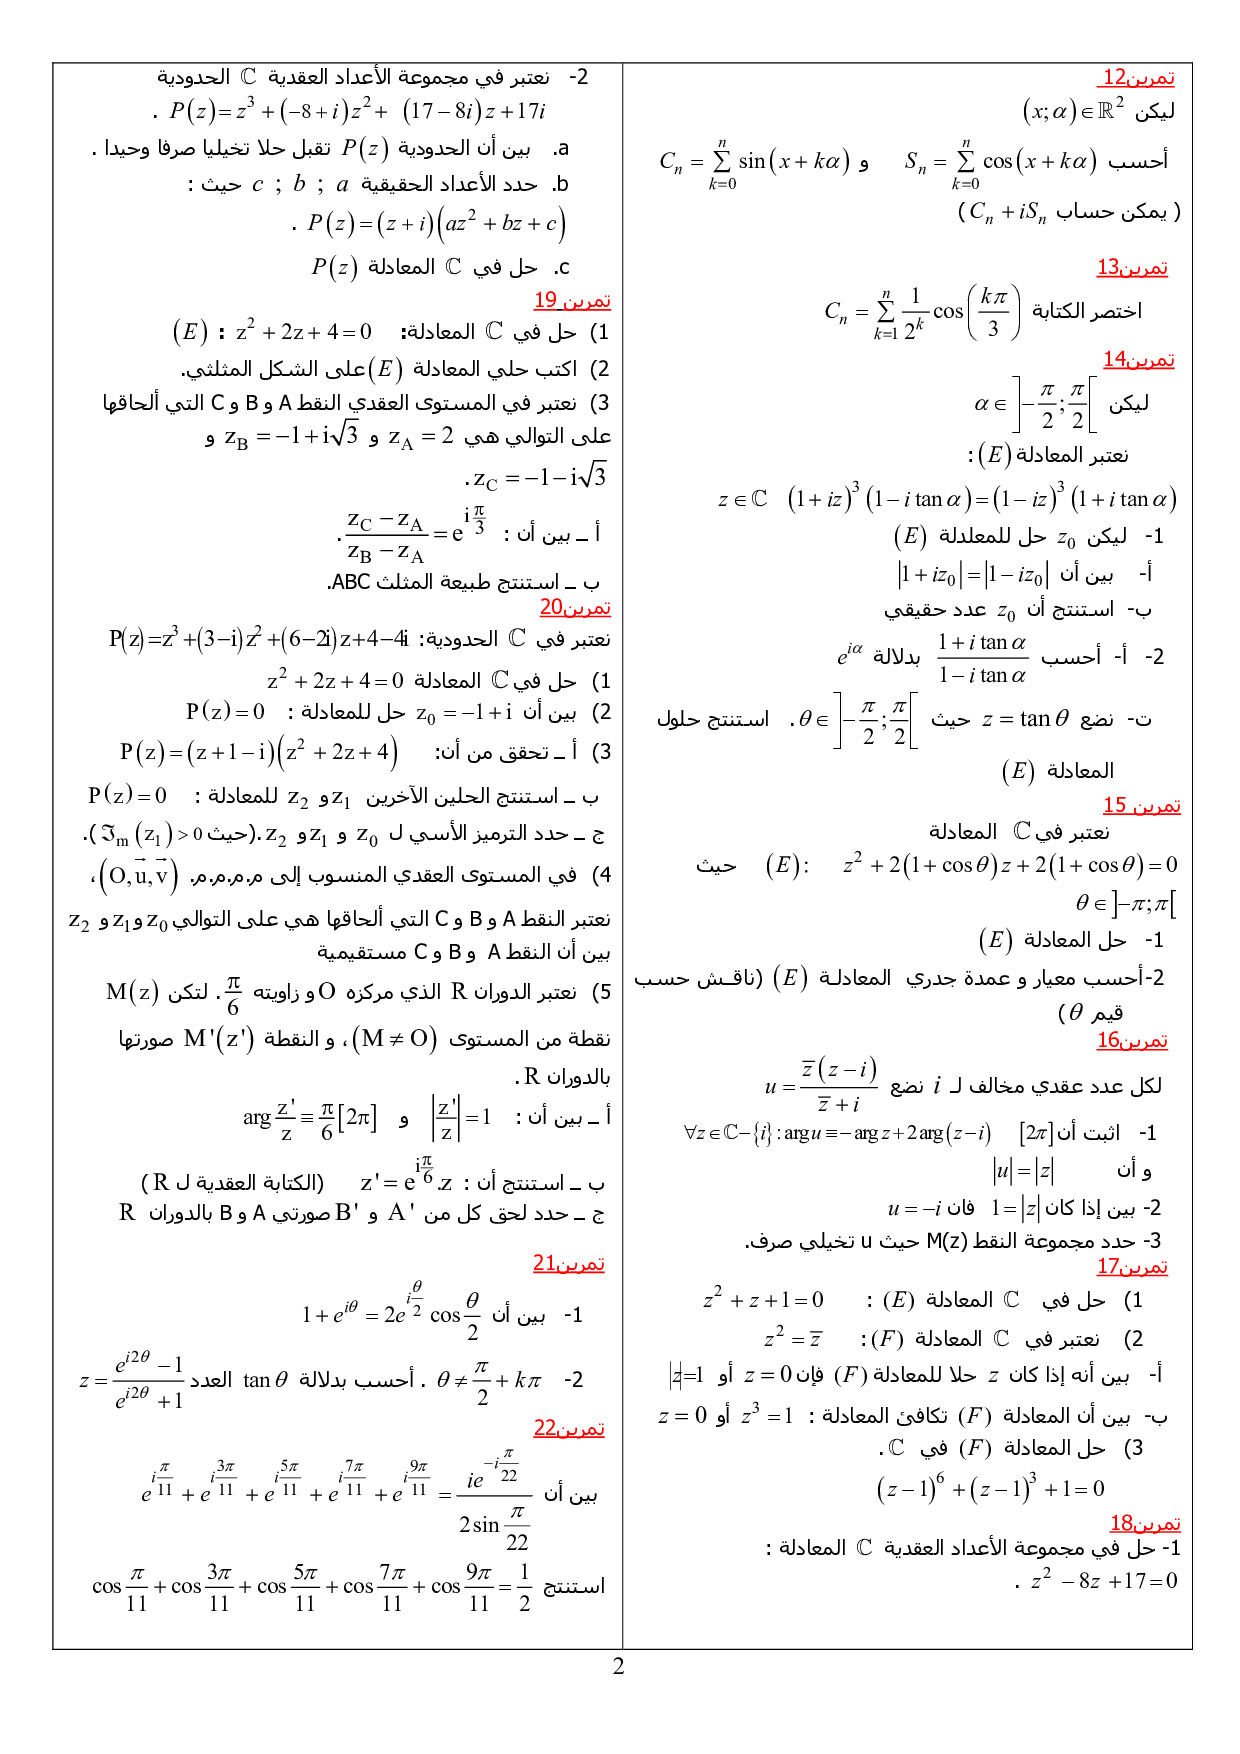 تمرين12
ليكن (x;α)∈ℝ²
أحسب S_n = Σ_{k=0}^{n} cos(x+kα) و C_n = Σ_{k=0}^{n} sin(x+kα)
( يمكن حساب C_n + iS_n )
تمرين13
اختصر الكتابة C_n = Σ_{k=1}^{n} 1/2^k cos(kπ/3)
تمرين14
ليكن α ∈ ]-π/2 ; π/2[
نعتبر المعادلة (E) :
z∈ℂ (1+iz)³(1-i tan α) = (1-iz)³(1+i tan α)
1- ليكن z₀ حل للمعلدلة (E)
أ- بين أن |1+iz₀| = |1-iz₀|
ب- استنتج أن z₀ عدد حقيقي
2- أ- أحسب (1+i tan α)/(1-i tan α) بدلالة e^{iα}
ت- نضع z = tan θ حيث θ ∈ ]-π/2 ; π/2[ . استنتج حلول
المعادلة (E)
تمرين 15
نعتبر في ℂ المعادلة
(E): z² + 2(1+cos θ)z + 2(1+cos θ) = 0 حيث
θ ∈ ]-π;π[
1- حل المعادلة (E)
2-أحسب معيار و عمدة جدري المعادلة (E) (ناقش حسب
قيم θ)
تمرين16
لكل عدد عقدي مخالف لـ i نضع u = z̄(z-i)/(z̄+i)
1- اثبت أن ∀z∈ℂ-{i} : arg u ≡ -arg z + 2arg(z-i) [2π]
و أن |u| = |z|
2- بين إذا كان |z| = 1 فان u = -i
3- حدد مجموعة النقط M(z) حيث u تخيلي صرف.
تمرين17
1) حل في ℂ المعادلة (E) : z² + z + 1 = 0
2) نعتبر في ℂ المعادلة (F) : z² = z̄
أ- بين أنه إذا كان z حلا للمعادلة (F) فإن z = 0 أو |z|=1
ب- بين أن المعادلة (F) تكافئ المعادلة : z³ = 1 أو z = 0
3) حل المعادلة (F) في ℂ .
(z-1)⁶ + (z-1)³ + 1 = 0
تمرين18
1- حل في مجموعة الأعداد العقدية ℂ المعادلة :
z² - 8z + 17 = 0 .
2- نعتبر في مجموعة الأعداد العقدية ℂ الحدودية
P(z) = z³ + (-8+i)z² + (17-8i)z + 17i .
a. بين أن الحدودية P(z) تقبل حلا تخيليا صرفا وحيدا .
b. حدد الأعداد الحقيقية a ; b ; c حيث :
P(z) = (z+i)(az² + bz + c) .
c. حل في ℂ المعادلة P(z)
تمرين 19
1) حل في ℂ المعادلة: z² + 2z + 4 = 0 : (E)
2) اكتب حلي المعادلة (E) على الشكل المثلثي.
3) نعتبر في المستوى العقدي النقط A و B و C التي ألحاقها
على التوالي هي z_A = 2 و z_B = -1+i√3 و
z_C = -1-i√3 .
أ ــ بين أن : (z_C - z_A)/(z_B - z_A) = e^{iπ/3} .
ب ــ استنتج طبيعة المثلث ABC.
تمرين20
نعتبر في ℂ الحدودية: P(z)=z³+(3-i)z²+(6-2i)z+4-4i
1) حل في ℂ المعادلة z² + 2z + 4 = 0
2) بين أن z₀ = -1+i حل للمعادلة : P(z) = 0
3) أ ــ تحقق من أن: P(z) = (z+1-i)(z² + 2z + 4)
ب ــ استنتج الحلين الآخرين z₁ و z₂ للمعادلة : P(z) = 0
ج ــ حدد الترميز الأسي ل z₀ و z₁ و z₂ .(حيث ℑm(z₁) > 0 ).
4) في المستوى العقدي المنسوب إلى م.م.م.م. (O,u⃗,v⃗) ،
نعتبر النقط A و B و C التي ألحاقها هي على التوالي z₀ و z₁ و z₂
بين أن النقط A و B و C مستقيمية
5) نعتبر الدوران R الذي مركزه O و زاويته π/6 . لتكن M(z)
نقطة من المستوى (M ≠ O) ، و النقطة M'(z') صورتها
بالدوران R .
أ ــ بين أن : |z'/z| = 1 و arg z'/z ≡ π/6 [2π]
ب ــ استنتج أن : z' = e^{iπ/6}.z (الكتابة العقدية ل R )
ج ــ حدد لحق كل من A' و B' صورتي A و B بالدوران R
تمرين21
1- بين أن 1 + e^{iθ} = 2e^{iθ/2} cos θ/2
2- θ ≠ π/2 + kπ . أحسب بدلالة tan θ العدد z = (e^{i2θ} - 1)/(e^{i2θ} + 1)
تمرين22
بين أن e^{iπ/11} + e^{i3π/11} + e^{i5π/11} + e^{i7π/11} + e^{i9π/11} = ie^{-iπ/22}/(2 sin π/22)
استنتج cos π/11 + cos 3π/11 + cos 5π/11 + cos 7π/11 + cos 9π/11 = 1/2
2